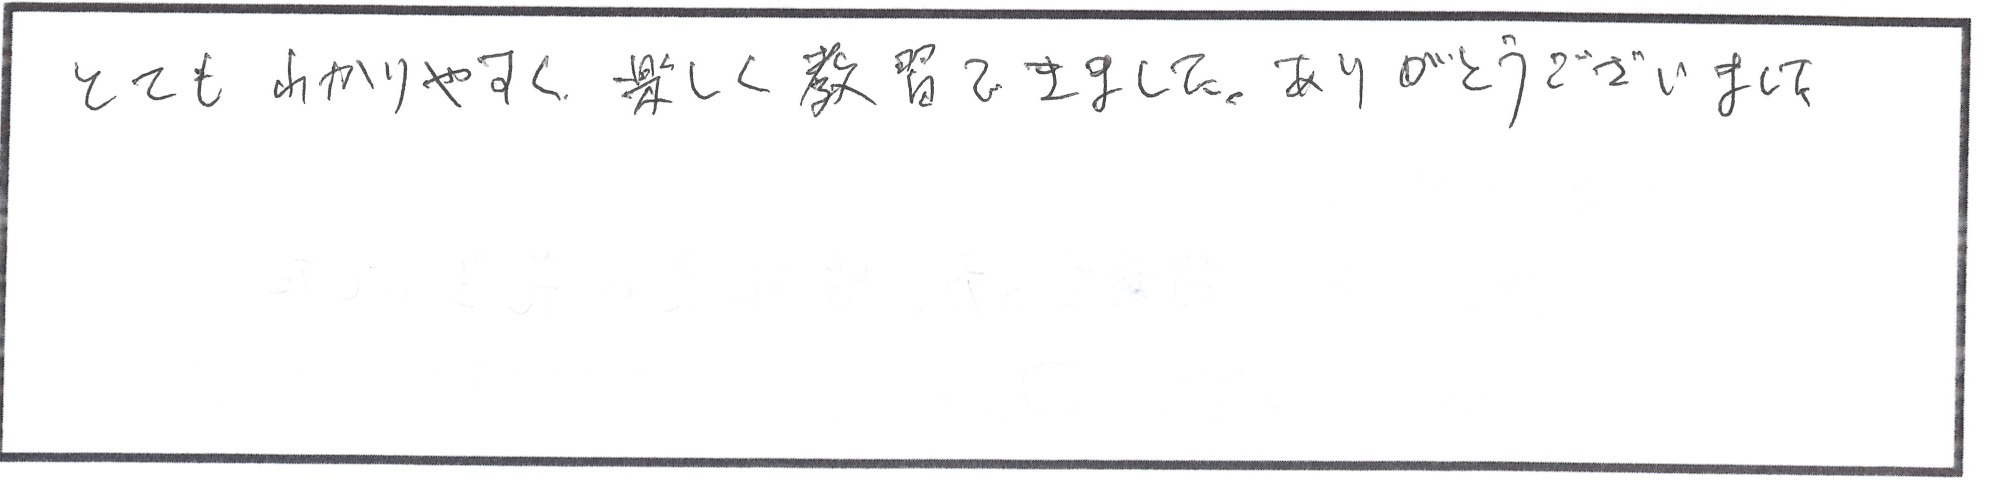 とてもわかりやすく楽しく教習できました。ありがとうございました